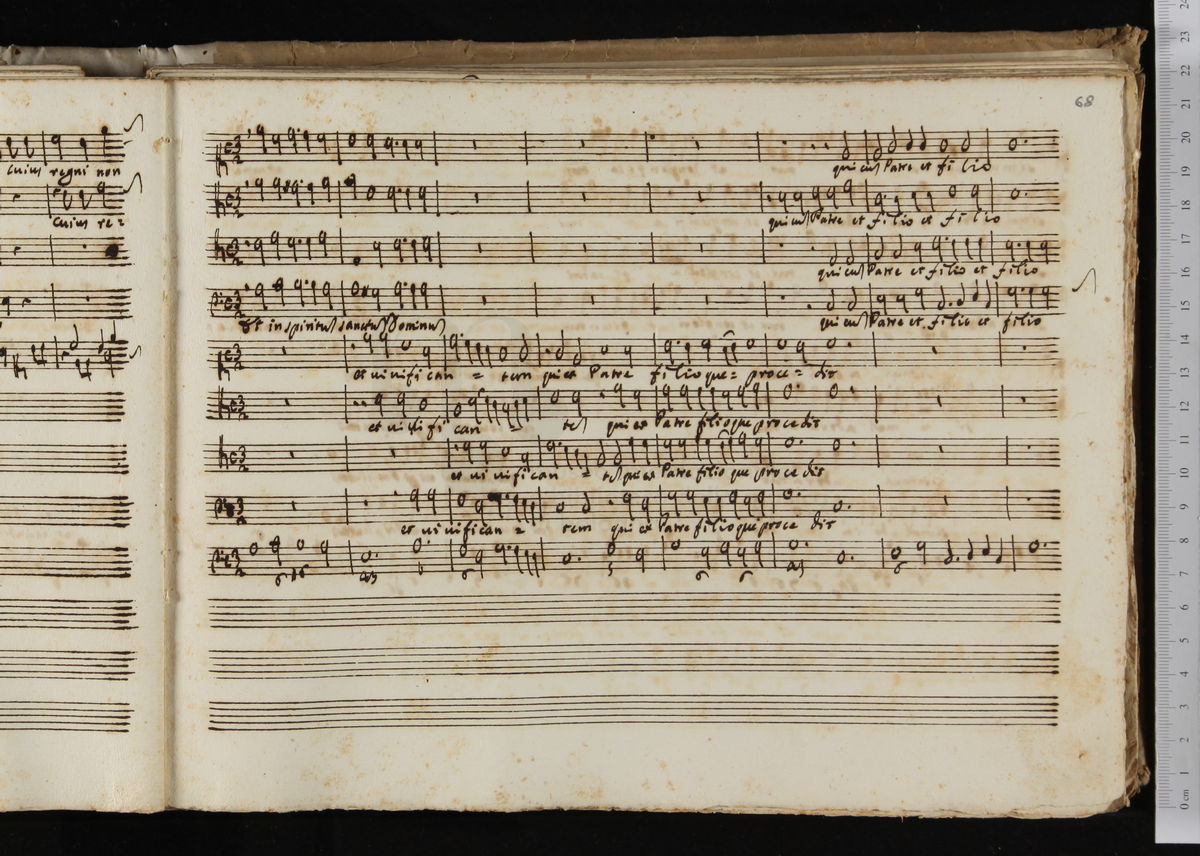 68
cuius regni non
qui cum Patre et filio
cuius re=
qui cum Patre et filio et filio
qui cum Patre et filio et filio
Et in spiritum sanctum Dominum
qui cum Patre et filio et filio
et vivifican = tem qui ex Patre filioque= proce = dit
et vivifican = tem qui ex Patre filioque procedit
et vivifican = tem qui ex Patre filio que procedit
et vivifican = tem qui ex Patre filioque proce dit